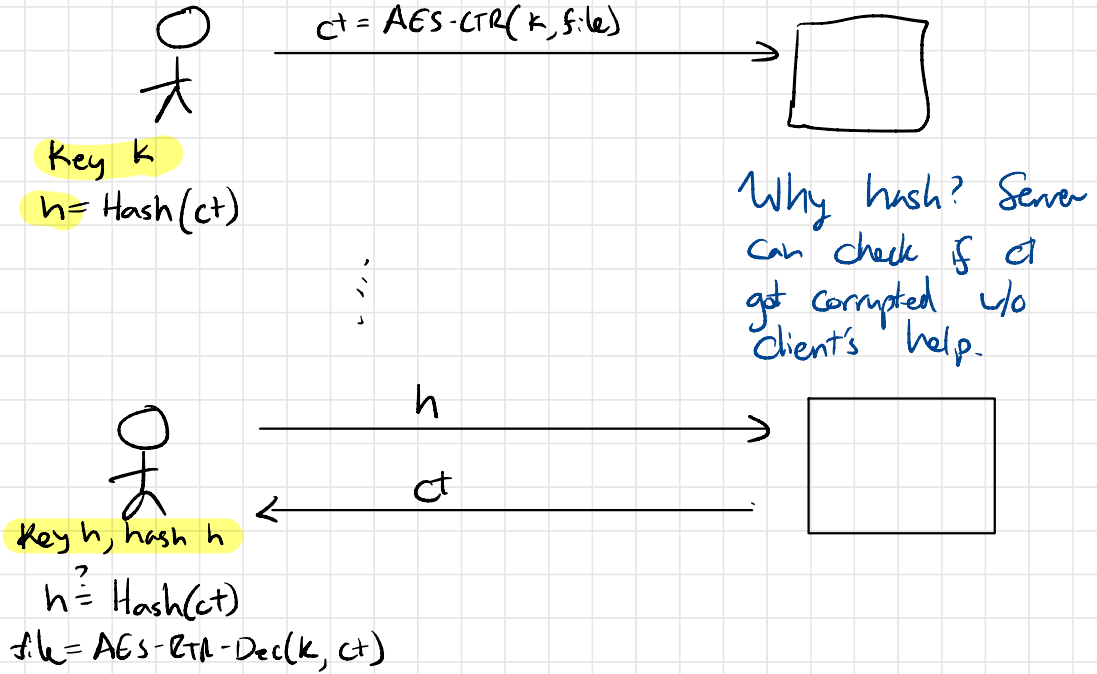 ct = AES-CTR(k, file)
Key k
h = Hash(ct)
Why hash? Server
can check if ct
got corrupted w/o
client's help.
h
ct
Key h, hash h
h ?= Hash(ct)
file = AES-CTR-Dec(k, ct)